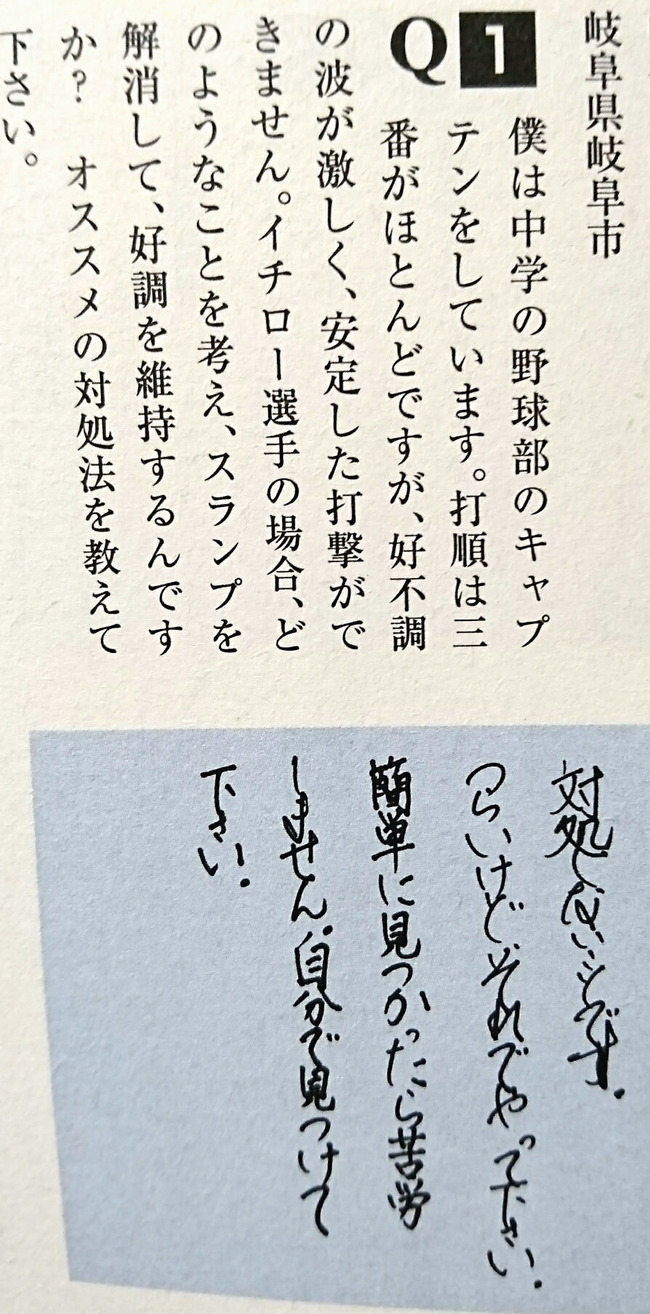 岐阜県岐阜市
Q1
僕は中学の野球部のキャプ
テンをしています。打順は三
番がほとんどですが、好不調
の波が激しく、安定した打撃がで
きません。イチロー選手の場合、ど
のようなことを考え、スランプを
解消して、好調を維持するんです
か？ オススメの対処法を教えて
下さい。
対処しないことです。
つらいけどそれでやって下さい。
簡単に見つかったら苦労
しません。自分で見つけて
下さい。